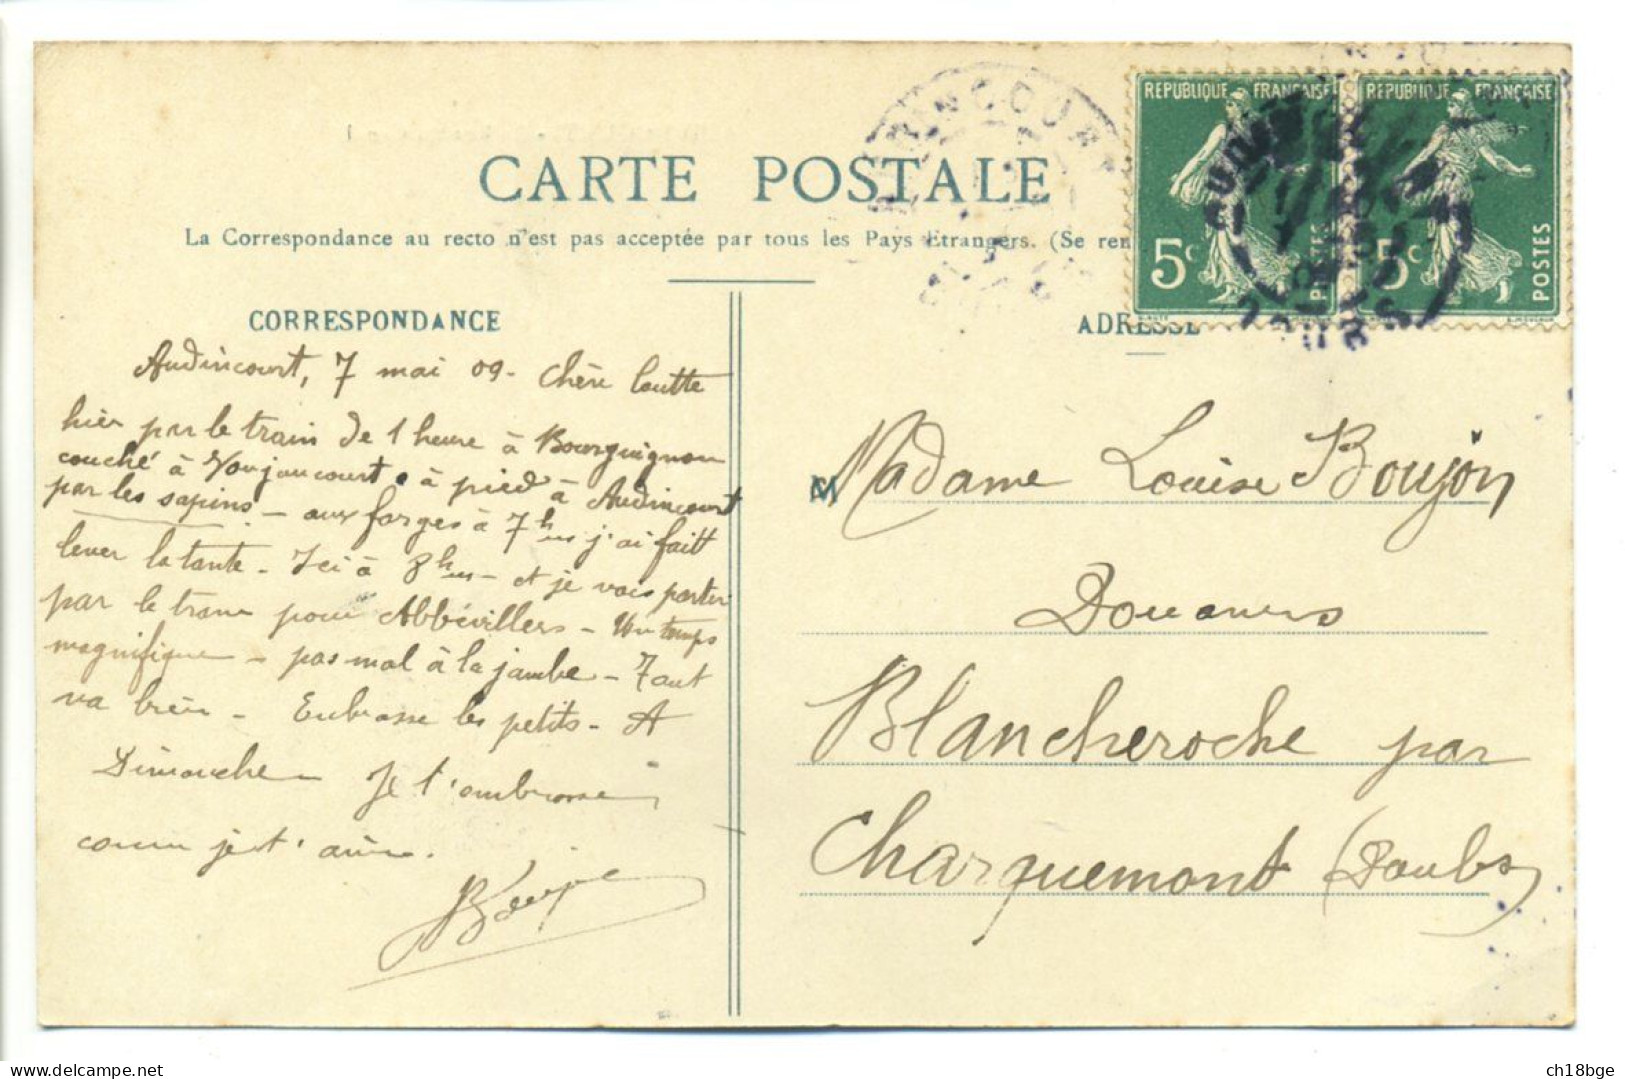 CARTE POSTALE
La Correspondance au recto n'est pas acceptée par tous les Pays Etrangers. (Se ren
CORRESPONDANCE
Audincourt, 7 mai 09 - Chère loutte
hier par le train de 1 heure à Bourguignon
couché à Voujaucourt à pied à Audincourt
par les sapins - aux forges à 7 hes j'ai fait
lever la tante - Ici à 8 hes - et je vais partir
par le tram pour Abbévillers - Un temps
magnifique - pas mal à la jambe - Tout
va bien - Embrasse les petits - A
Dimanche - Je t'embrasse
comme je t'aime.
ADRESSE
Madame Louise Boujon
Douanes
Blancheroche par
Charquemont (Doubs)
REPUBLIQUE FRANÇAISE
5c
POSTES
REPUBLIQUE FRANÇAISE
5c
POSTES
www.delcampe.net
ch18bge